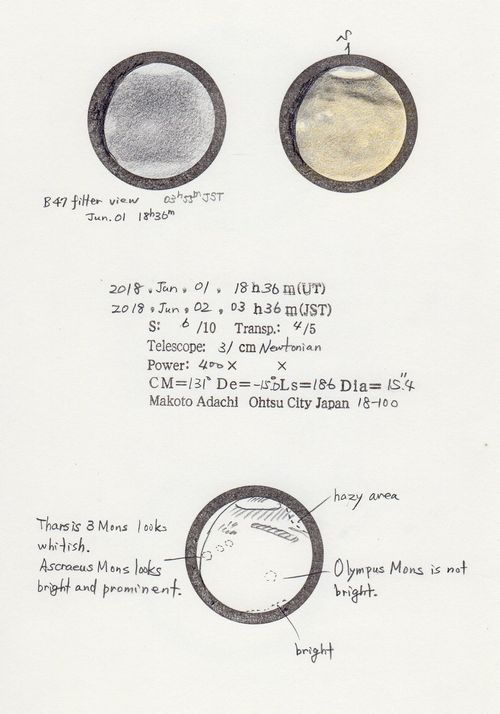 S
B47 filter view 03h53m JST
Jun. 01 18h36m
2018, Jun, 01, 18h36m(UT)
2018, Jun, 02, 03h36m(JST)
S: 6/10 Transp.: 4/5
Telescope: 31cm Newtonian
Power: 400× ×
CM=131° De=-15.0 Ls=186 Dia=15".4
Makoto Adachi Ohtsu City Japan 18-100
hazy area
Tharsis 3 Mons looks
whitish.
Ascraeus Mons looks
bright and prominent.
Olympus Mons is not
bright.
bright